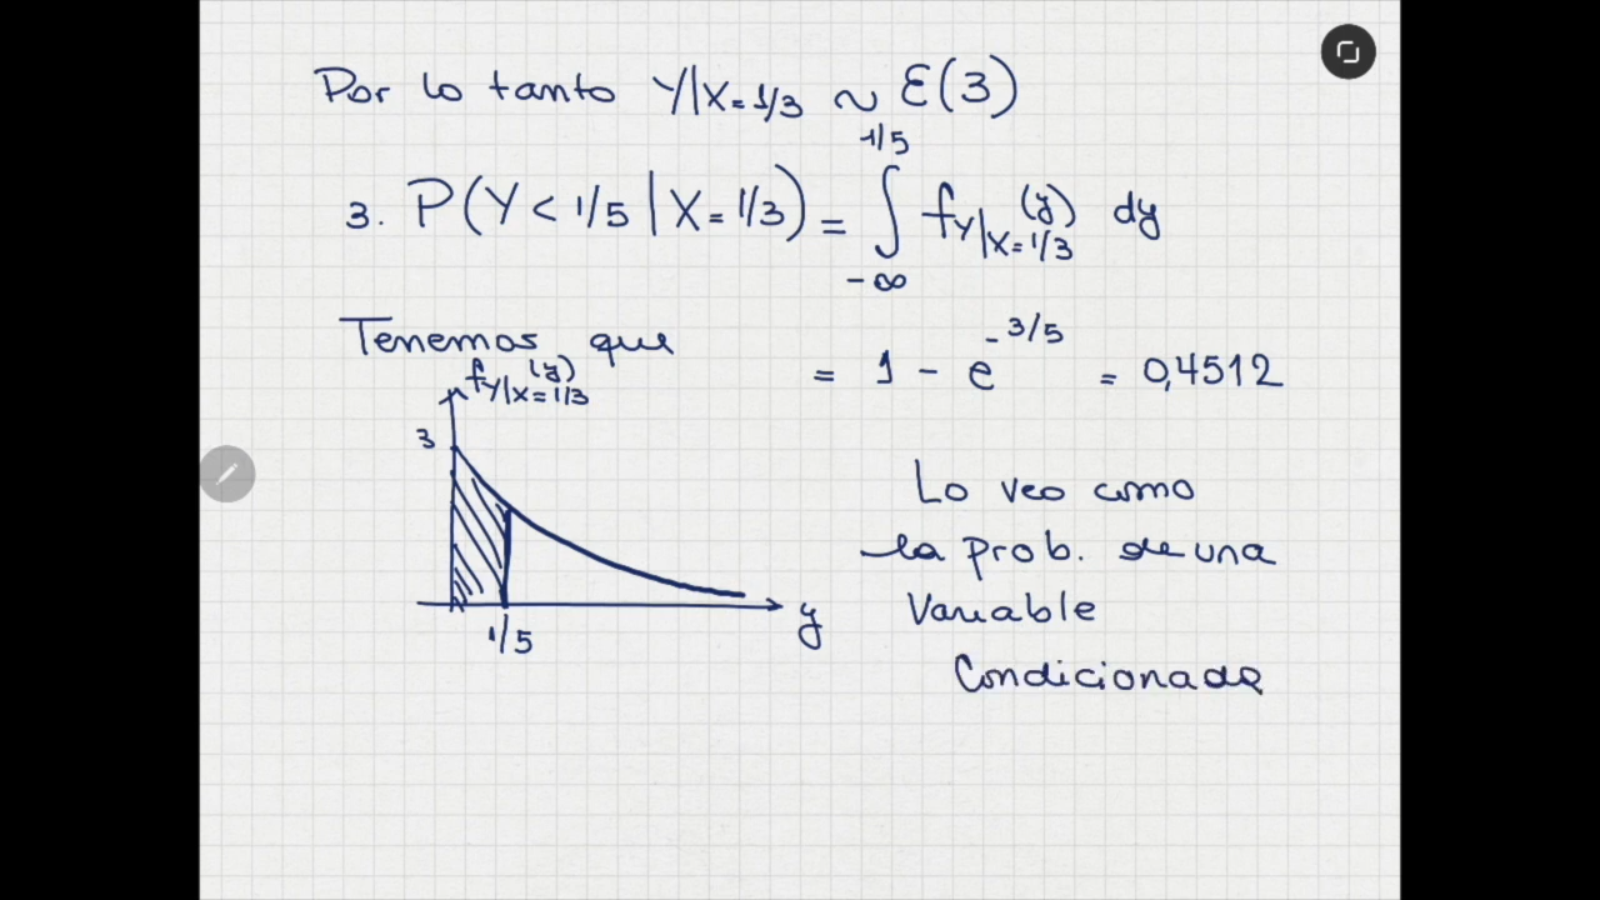 Por lo tanto Y|X=1/3 ~ ε(3)
3. P(Y < 1/5 | X = 1/3) = ∫_{-∞}^{1/5} f_{Y|X=1/3}(y) dy
Tenemos que
= 1 - e^{-3/5} = 0,4512
f_{Y|X=1/3}(y)
3
1/5
y
Lo veo como
la prob. de una
Variable
Condicionada